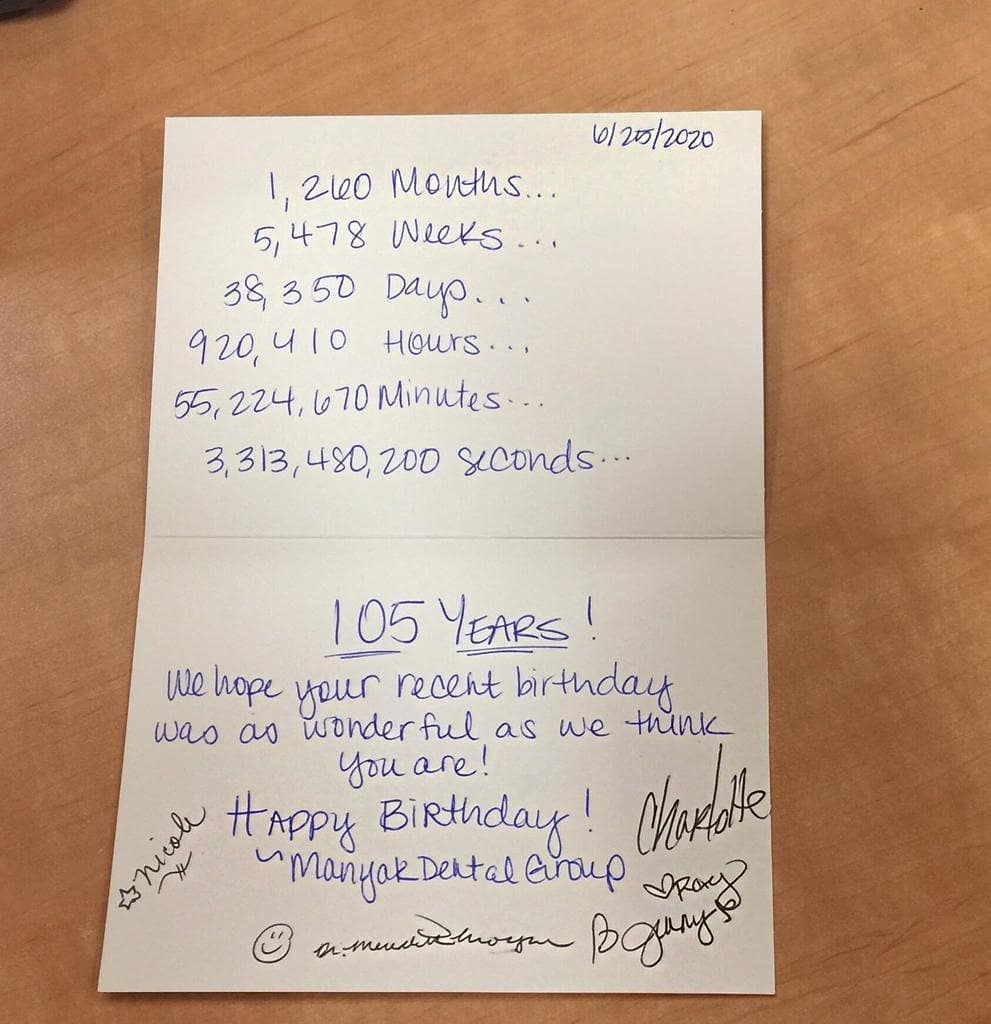 6/25/2020
1,260 Months...
5,478 Weeks...
38,350 Days...
920,410 Hours...
55,224,670 Minutes...
3,313,480,200 Seconds...
105 YEARS!
We hope your recent birthday
was as wonderful as we think
you are!
HAPPY BiRthday!
~Manyak Dental Group
Charlotte
Nicole
Roxy
Jenny
Dr. Meredith